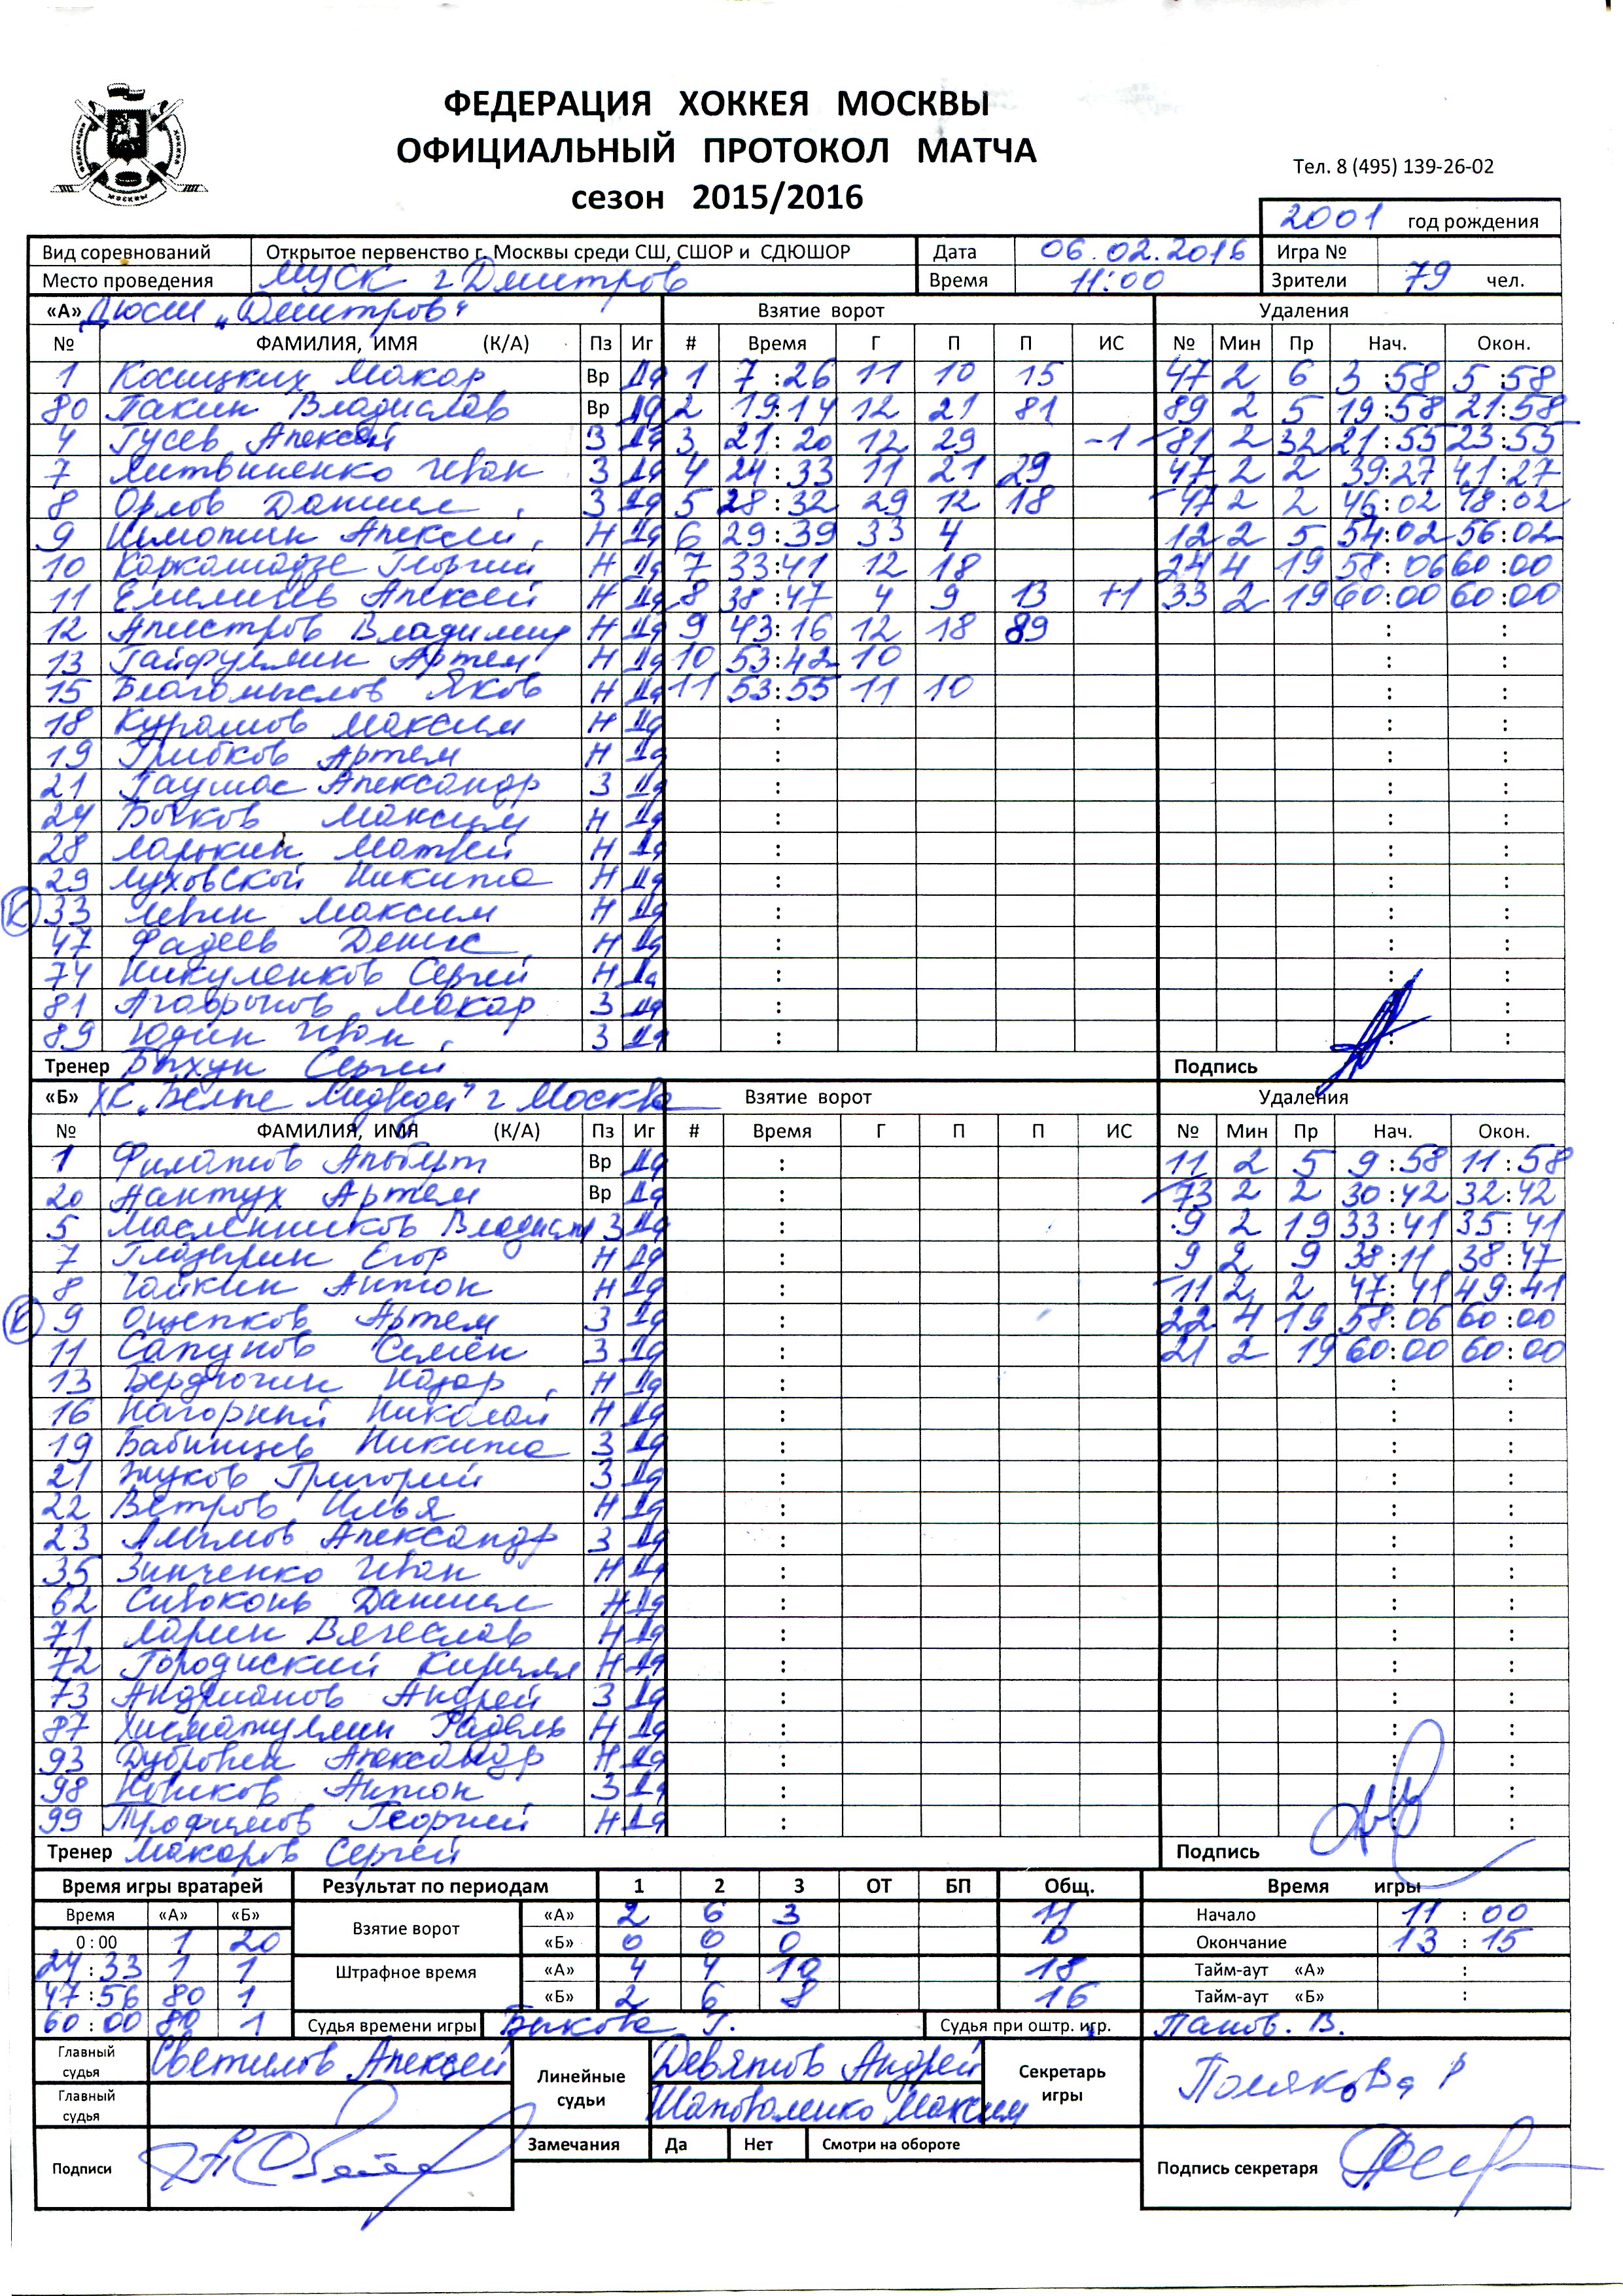 ФЕДЕРАЦИЯ ХОККЕЯ МОСКВЫ
ОФИЦИАЛЬНЫЙ ПРОТОКОЛ МАТЧА
Тел. 8 (495) 139-26-02
сезон 2015/2016
2001 год рождения
Вид соревнований Открытое первенство г. Москвы среди СШ, СШОР и СДЮШОР Дата 06.02.2016 Игра №
Место проведения МУСК г Дмитров Время 11:00 Зрители 79 чел.
«А» ДЮСШ „Дмитров" Взятие ворот Удаления
№ ФАМИЛИЯ, ИМЯ (К/А) Пз Иг # Время Г П П ИС № Мин Пр Нач. Окон.
1 Косицких Макар Вр Да 1 7:26 11 10 15 47 2 6 3:58 5:58
80 Пакин Владислав Вр Да 2 19:14 12 21 81 89 2 5 19:58 21:58
4 Гусев Алексей З Да 3 21:20 12 29 -1 81 2 32 21:55 23:55
7 Литвиненко Иван З Да 4 24:33 11 21 29 47 2 2 39:27 41:27
8 Орлов Даниил З Да 5 28:32 29 12 18 47 2 2 46:02 48:02
9 Алексей Н Да 6 29:39 33 4 12 2 5 54:02 56:02
10 Каркашадзе Георгий Н Да 7 33:41 12 18 24 4 19 58:06 60:00
11 Алексей Н Да 8 38:47 4 9 13 +1 33 2 19 60:00 60:00
12 Апистров Владимир Н Да 9 43:16 12 18 89 :
13 Гайфуллин Артем Н Да 10 53:42 10 : :
15 Благомыслов Яков Н Да 11 53:55 11 10 : :
18 Курашов Максим Н Да : : :
19 Грибков Артем Н Да : : :
21 Гаумас Александр З Да : : :
24 Бочков Максим Н Да : : :
28 Ларькин Матвей Н Да : : :
29 Луховской Никита Н Да : : :
К 33 Левин Максим Н Да : : :
47 Фадеев Денис Н Да : : :
74 Никуленков Сергей Н Да : : :
81 Макар З Да : : :
89 Юдин Иван З Да : : :
Тренер Быхун Сергей Подпись
«Б» ХК „Белые Медведи" г Москва Взятие ворот Удаления
№ ФАМИЛИЯ, ИМЯ (К/А) Пз Иг # Время Г П П ИС № Мин Пр Нач. Окон.
1 Филатов Альберт Вр Да : 11 2 5 9:58 11:58
20 Лантух Артем Вр Да : 73 2 2 30:42 32:42
5 Масленников Владислав З Да : 9 2 19 33:41 35:41
7 Глазырин Егор Н Да : 9 2 9 38:11 38:47
8 Чайкин Антон Н Да : 11 2 2 47:41 49:41
К 9 Ощепков Артем З Да : 22 4 19 58:06 60:00
11 Сапунов Семён З Да : 21 2 19 60:00 60:00
13 Бердюгин Назар Н Да : : :
16 Нагорный Николай Н Да : : :
19 Бабинцев Никита З Да : : :
21 Жуков Григорий З Да : : :
22 Ветров Илья Н Да : : :
23 Алимов Александр З Да : : :
35 Зинченко Иван Н Да : : :
62 Сивоконь Даниил Н Да : : :
71 Ларин Вячеслав Н Да : : :
72 Городиский Кирилл Н Да : : :
73 Андрианов Андрей З Да : : :
87 Хисматуллин Радель Н Да : : :
93 Дубровин Александр Н Да : : :
98 Новиков Антон З Да : : :
99 Трофимов Георгий Н Да : : :
Тренер Макаров Сергей Подпись
Время игры вратарей Результат по периодам 1 2 3 ОТ БП Общ. Время игры
Время «А» «Б» Взятие ворот «А» 2 6 3 11 Начало 11:00
0:00 1 20 «Б» 0 0 0 0 Окончание 13:15
24:33 1 1 Штрафное время «А» 4 4 10 18 Тайм-аут «А» :
47:56 80 1 «Б» 2 6 8 16 Тайм-аут «Б» :
60:00 80 1 Судья времени игры Быкова Г. Судья при оштр. игр. Панов. В.
Главный судья Светилов Алексей Линейные судьи Девятов Андрей Секретарь игры Полякова Р
Главный судья Шаповаленко Максим
Замечания Да Нет Смотри на обороте
Подписи Подпись секретаря